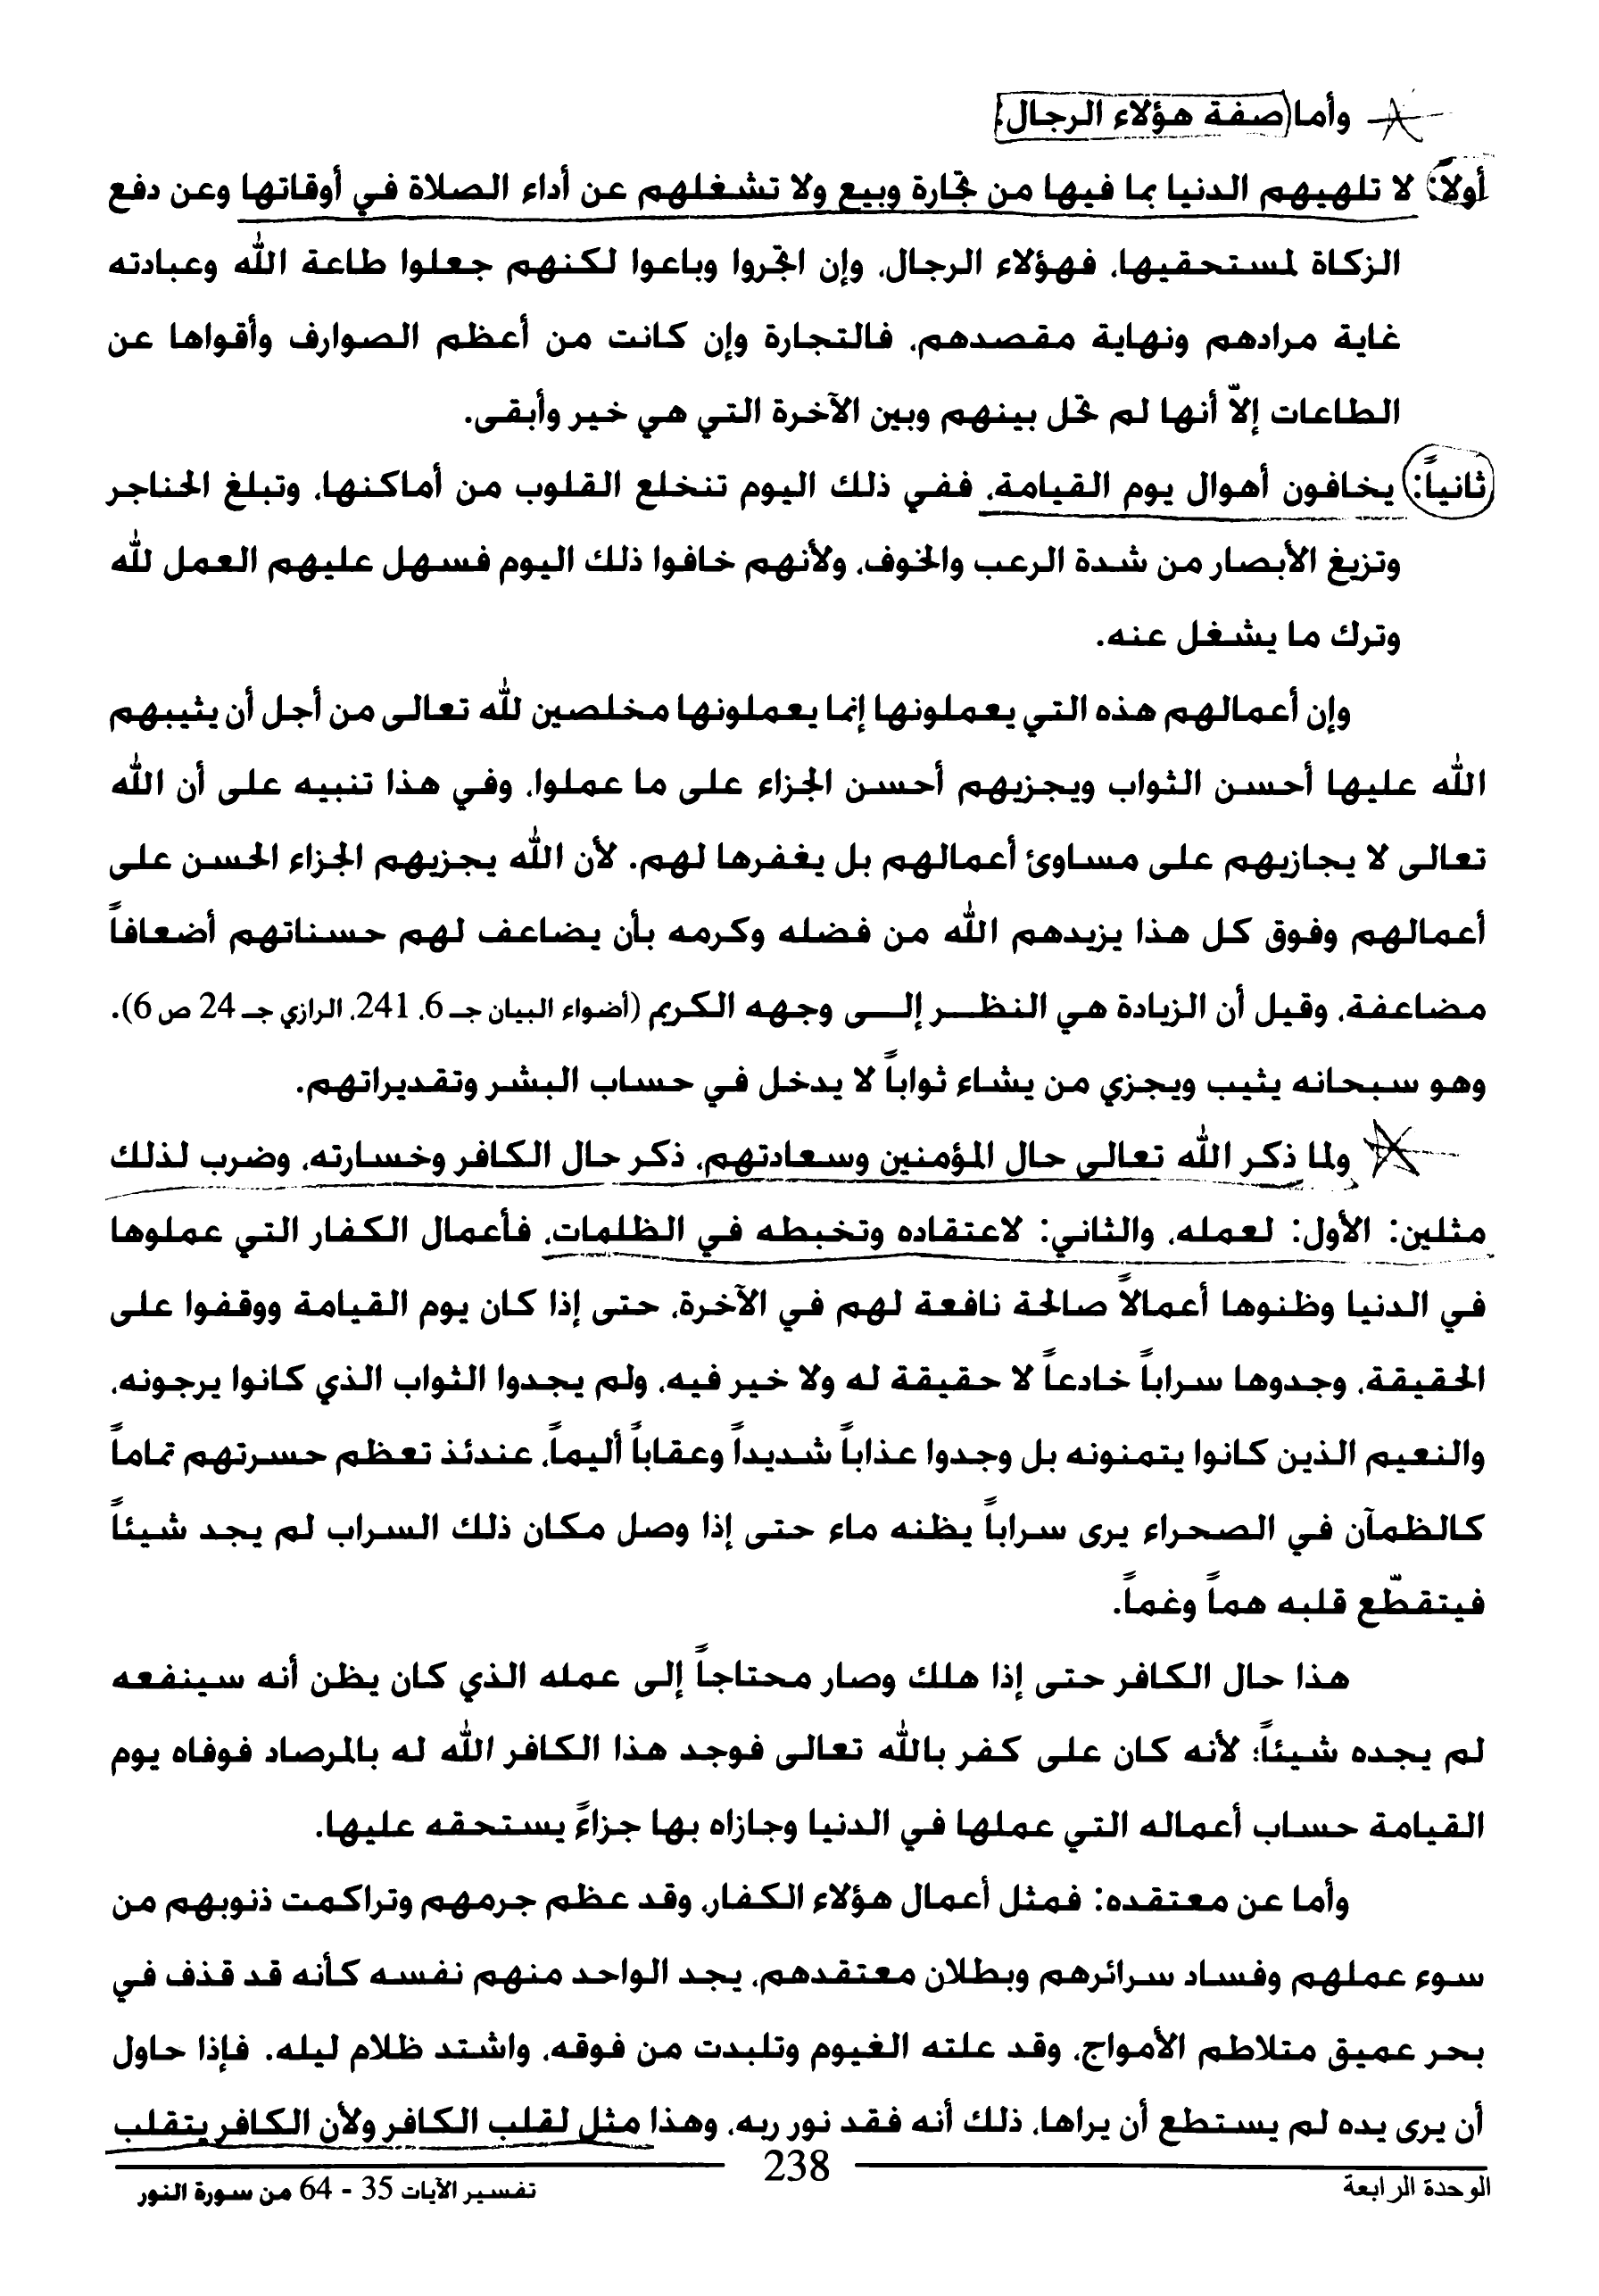 وأما صفة هؤلاء الرجال:
أولاً: لا تلهيهم الدنيا بما فيها من تجارة وبيع ولا تشغلهم عن أداء الصلاة في أوقاتها وعن دفع
الزكاة لمستحقيها، فهؤلاء الرجال، وإن اتجروا وباعوا لكنهم جعلوا طاعة الله وعبادته
غاية مرادهم ونهاية مقصدهم، فالتجارة وإن كانت من أعظم الصوارف وأقواها عن
الطاعات إلاّ أنها لم تحل بينهم وبين الآخرة التي هي خير وأبقى.
ثانياً: يخافون أهوال يوم القيامة، ففي ذلك اليوم تنخلع القلوب من أماكنها، وتبلغ الحناجر
وتزيغ الأبصار من شدة الرعب والخوف، ولأنهم خافوا ذلك اليوم فسهل عليهم العمل لله
وترك ما يشغل عنه.
وإن أعمالهم هذه التي يعملونها إنما يعملونها مخلصين لله تعالى من أجل أن يثيبهم
الله عليها أحسن الثواب ويجزيهم أحسن الجزاء على ما عملوا، وفي هذا تنبيه على أن الله
تعالى لا يجازيهم على مساوئ أعمالهم بل يغفرها لهم. لأن الله يجزيهم الجزاء الحسن على
أعمالهم وفوق كل هذا يزيدهم الله من فضله وكرمه بأن يضاعف لهم حسناتهم أضعافاً
مضاعفة، وقيل أن الزيادة هي النظر إلى وجهه الكريم (أضواء البيان جـ 6، 241، الرازي جـ 24 ص 6).
وهو سبحانه يثيب ويجزي من يشاء ثواباً لا يدخل في حساب البشر وتقديراتهم.
ولما ذكر الله تعالى حال المؤمنين وسعادتهم، ذكر حال الكافر وخسارته، وضرب لذلك
مثلين: الأول: لعمله، والثاني: لاعتقاده وتخبطه في الظلمات، فأعمال الكفار التي عملوها
في الدنيا وظنوها أعمالاً صالحة نافعة لهم في الآخرة، حتى إذا كان يوم القيامة ووقفوا على
الحقيقة، وجدوها سراباً خادعاً لا حقيقة له ولا خير فيه، ولم يجدوا الثواب الذي كانوا يرجونه،
والنعيم الذين كانوا يتمنونه بل وجدوا عذاباً شديداً وعقاباً أليماً، عندئذ تعظم حسرتهم تماماً
كالظمآن في الصحراء يرى سراباً يظنه ماء حتى إذا وصل مكان ذلك السراب لم يجد شيئاً
فيتقطّع قلبه هماً وغماً.
هذا حال الكافر حتى إذا هلك وصار محتاجاً إلى عمله الذي كان يظن أنه سينفعه
لم يجده شيئاً؛ لأنه كان على كفر بالله تعالى فوجد هذا الكافر الله له بالمرصاد فوفاه يوم
القيامة حساب أعماله التي عملها في الدنيا وجازاه بها جزاءً يستحقه عليها.
وأما عن معتقده: فمثل أعمال هؤلاء الكفار، وقد عظم جرمهم وتراكمت ذنوبهم من
سوء عملهم وفساد سرائرهم وبطلان معتقدهم، يجد الواحد منهم نفسه كأنه قد قذف في
بحر عميق متلاطم الأمواج، وقد علته الغيوم وتلبدت من فوقه، واشتد ظلام ليله. فإذا حاول
أن يرى يده لم يستطع أن يراها، ذلك أنه فقد نور ربه، وهذا مثل لقلب الكافر ولأن الكافر يتقلب
238
الوحدة الرابعة
تفسير الآيات 35 - 64 من سورة النور